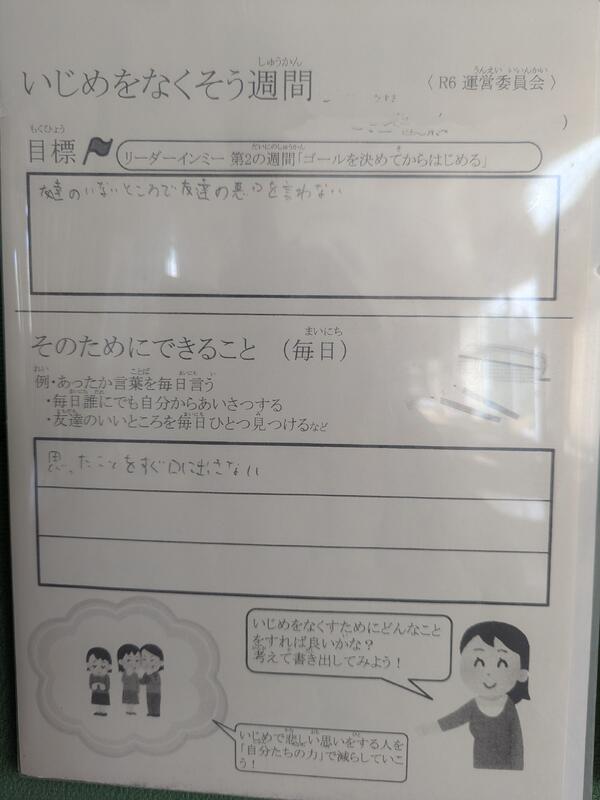 いじめをなくそう週間
〈 R6 運営委員会 〉
目標
リーダーインミー 第2の週間「ゴールを決めてからはじめる」
友達のいないところで友達の悪口を言わない
そのためにできること （毎日）
例・あったか言葉を毎日言う
・毎日誰にでも自分からあいさつする
・友達のいいところを毎日ひとつ見つけるなど
思ったことをすぐ口に出さない
いじめをなくすためにどんなこと
をすれば良いかな？
考えて書き出してみよう！
いじめで悲しい思いをする人を
「自分たちの力」で減らしていこ
う！